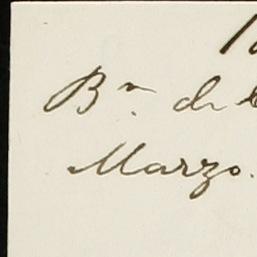 Bⁿ. de
Marzo.